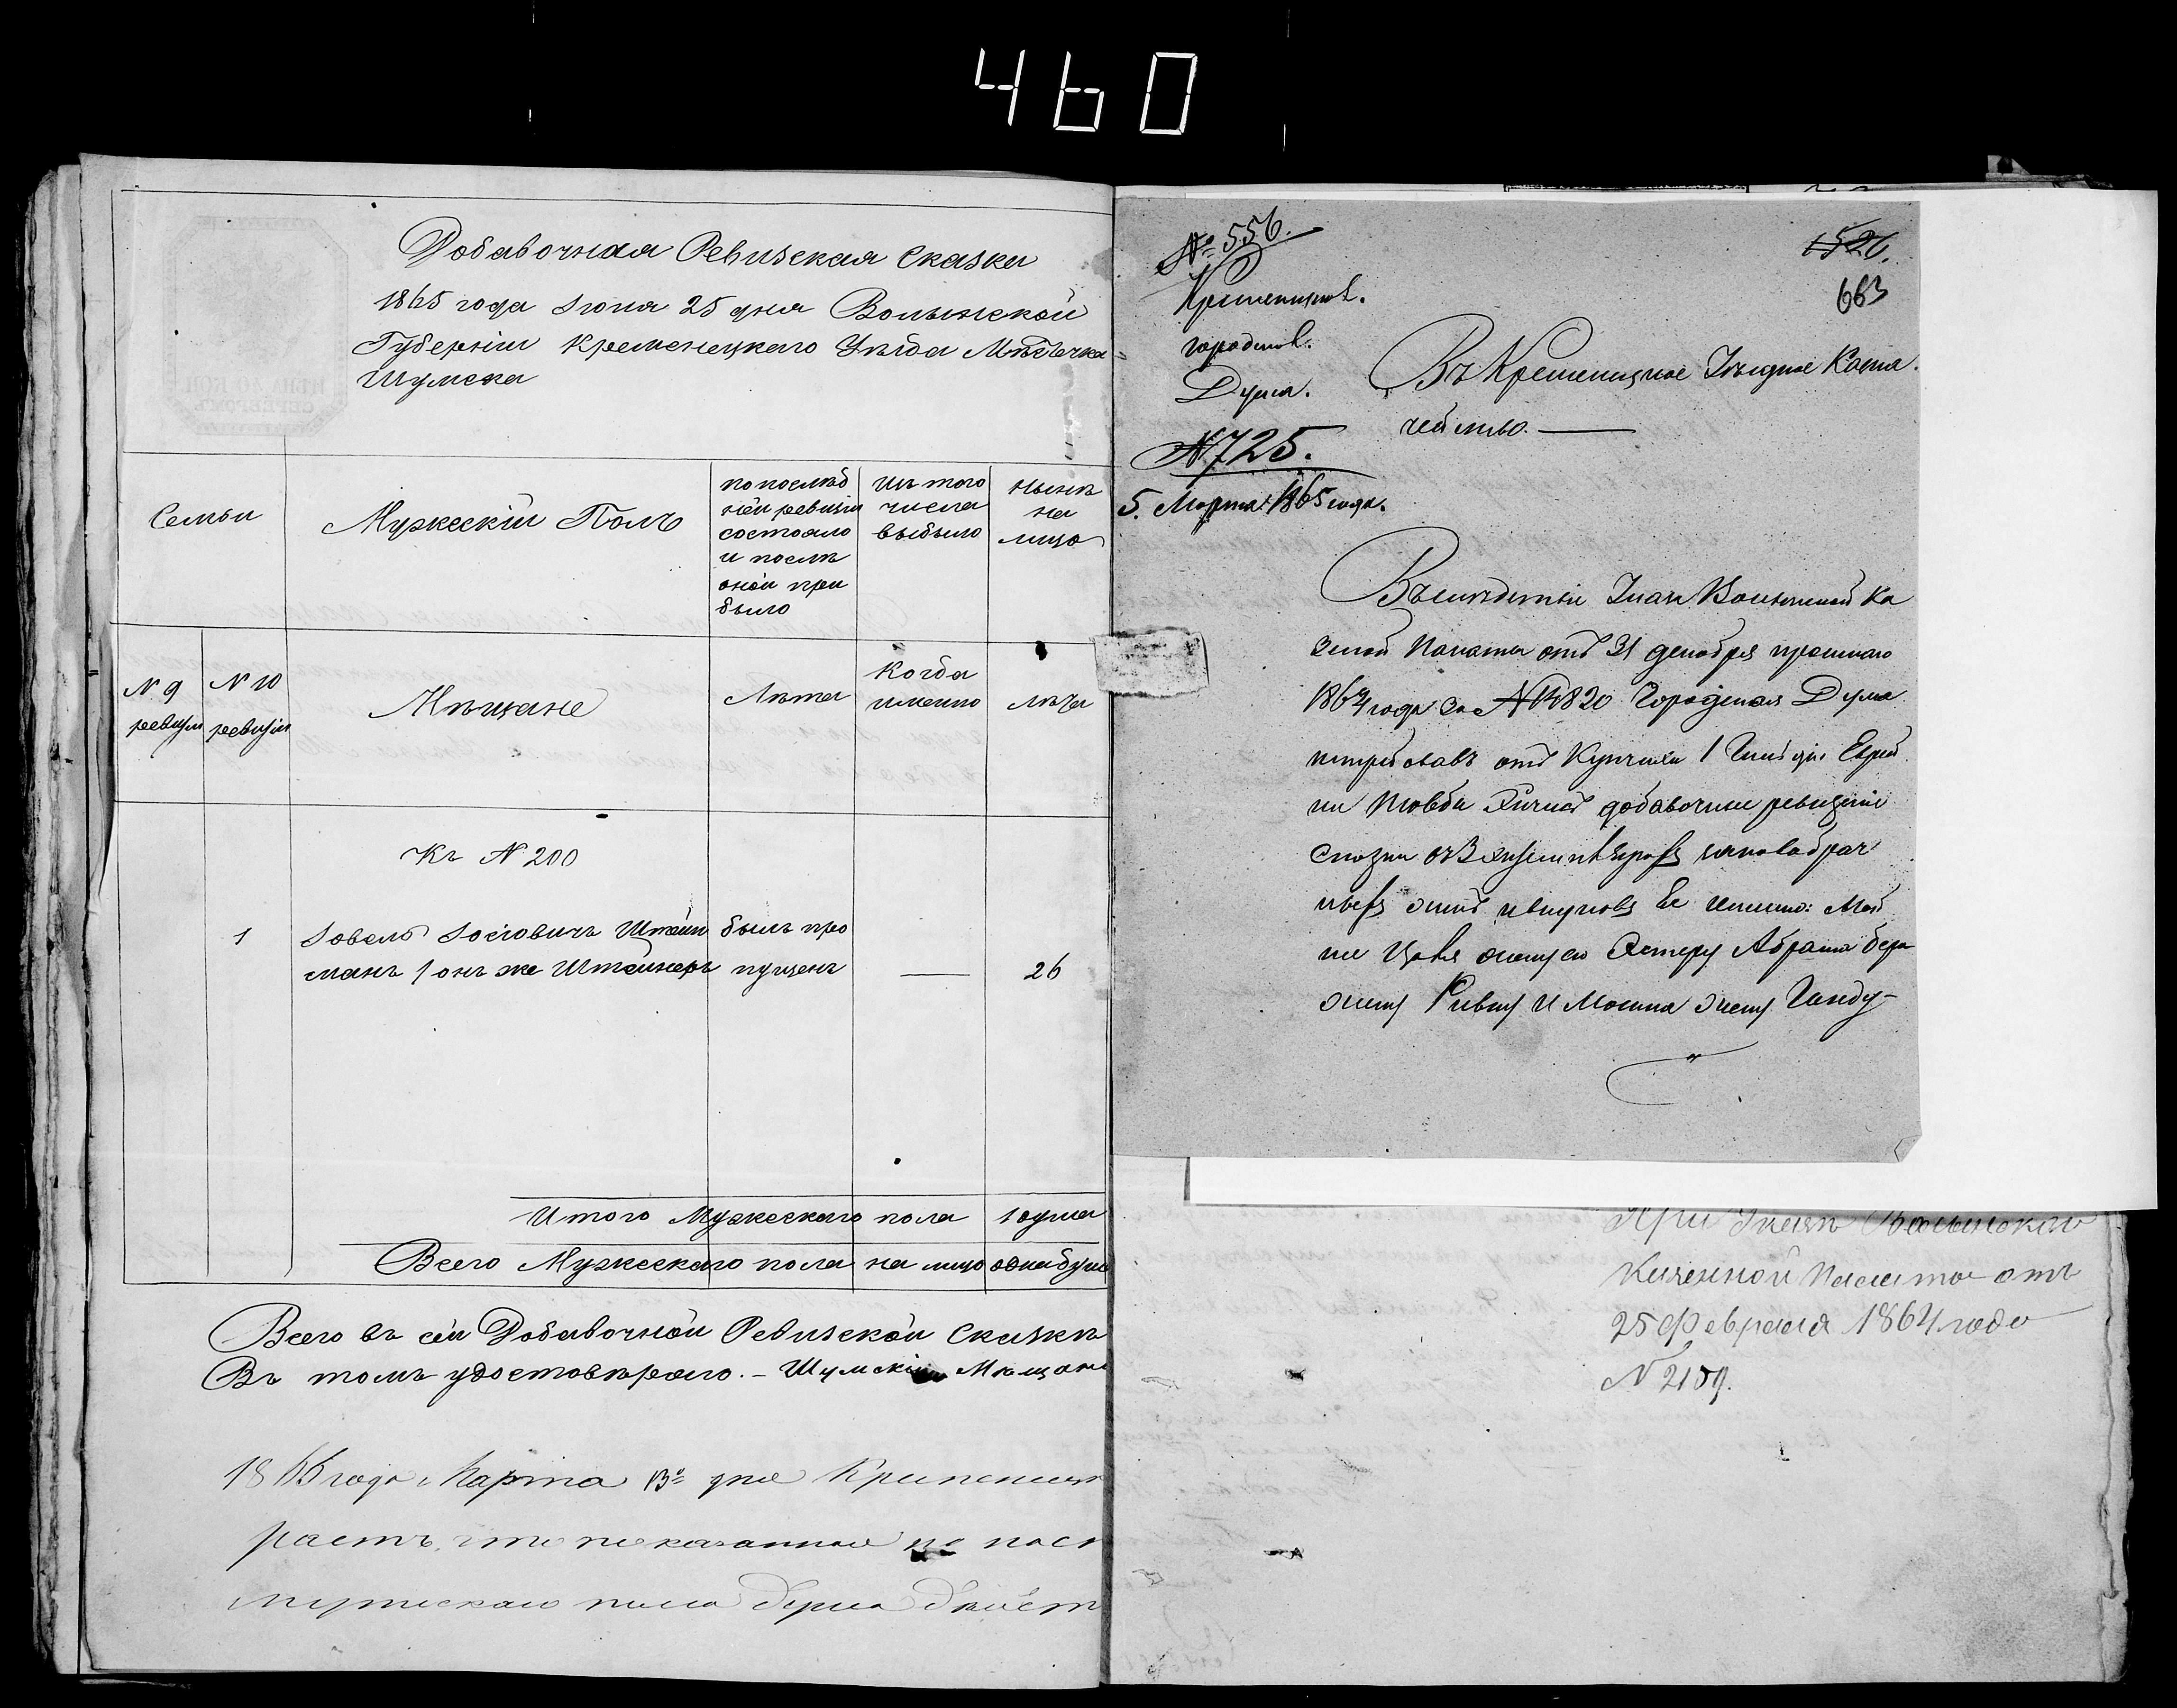 460
Добавочная Ревизская Сказка
1865 года Іюня 25 дня Волынской
Губерніи Кременецкаго Уѣзда Мѣстечка
Шумска
Семьи
Мужескій Полъ
по послѣд
ней ревизіи
состояло
и послѣ
оной при
было
изъ того
числа
выбыло
нынѣ
на
лицо
N 9
ревизіи
N 10
ревизіи
Мѣщане
Лѣта
Когда
именно
лѣта
Къ N 200
1
Іовель Іосіовичъ Штейн
манъ / онъ же Штейнеръ
былъ про
пущенъ
26
Итого Мужескаго пола 1 душа
Всего Мужескаго пола на лицо одна душа
Всего въ сей Добавочной Ревизской Сказкѣ
Въ томъ удостовѣряю. - Шумскій Мѣщан
1865 года Марта 13го дня Кременец
растъ, что показанная по посл
мужескаго пола душа дѣйст
№ 556.
Кременецкой.
городской.
Дума.
N 725.
5. Марта 1865 года.
1526.
663
Въ Кременецкое Уѣздное Казна
чейство.
Въ слѣдствіи Указа Волынской Ка
зеной Палаты отъ 31 декабря прошлаго
1864 года за N 14820 Городская Дума
потребовавъ отъ Купчихи 1 Гильдіи Еврей
ки добавочные ревизскіе
сказки о
внуковъ Ее именно:
жену его Эстеру Абрама Бера
жену Ривку и Мошка жену Гинду
При Указѣ Волынской
Казенной Палаты отъ
25 Февраля 1864 года
N 2109.